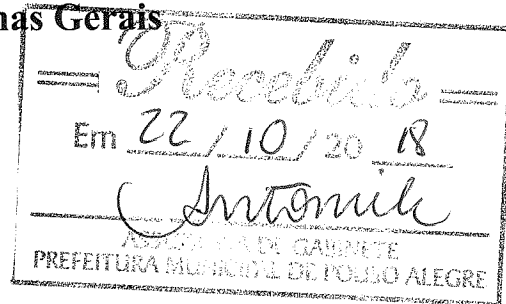 nas Gerais
Recebido
Em 22 / 10 / 20 18
DE GABINETE
PREFEITURA MUNICIPAL DE POUSO ALEGRE